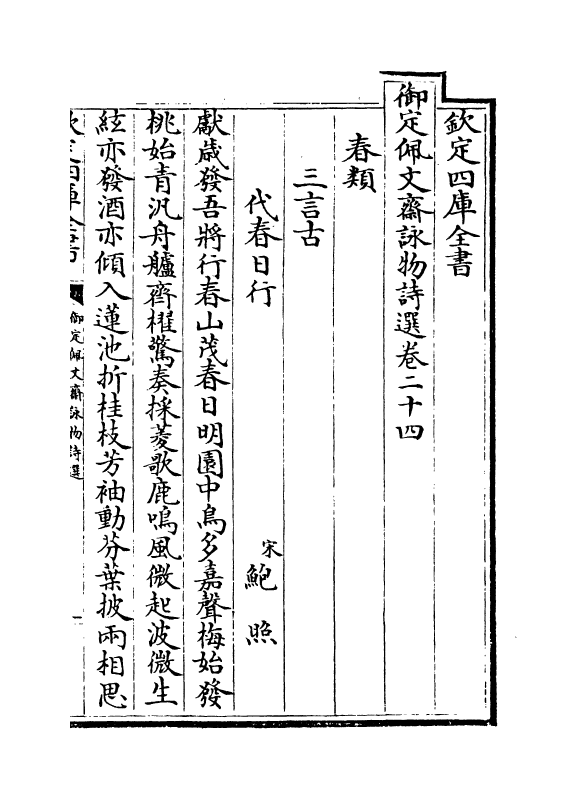 欽定四庫全書
御定佩文齋詠物詩選卷二十四
春類
三言古
代春日行 宋 鮑照
獻歲發吾將行春山茂春日明園中鳥多嘉聲梅始發
桃始青汎舟艫齊櫂驚奏採菱歌鹿鳴風微起波微生
絃亦發酒亦傾入蓮池折桂枝芳袖動芬葉披兩相思
欽定四庫全書 御定佩文齋詠物詩選 一